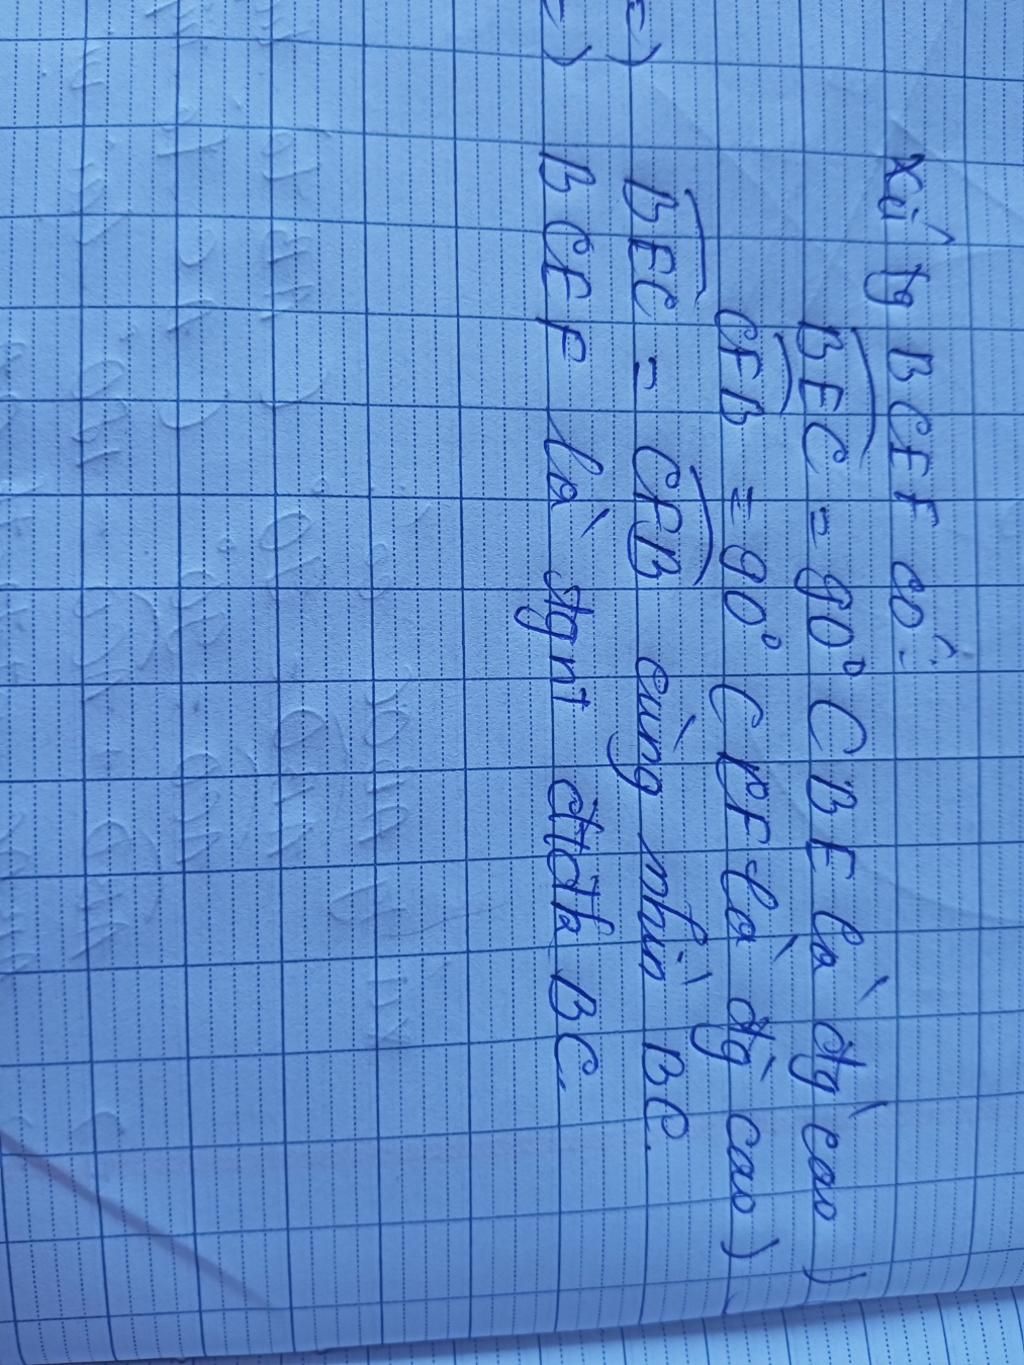 Xét tg BCEF có:
BEC = 90° (BE là đg cao)
CFB = 90° (CF là đg cao)
=> BEC = CFB cùng nhìn BC.
=> BCEF là tgnt đtđk BC.